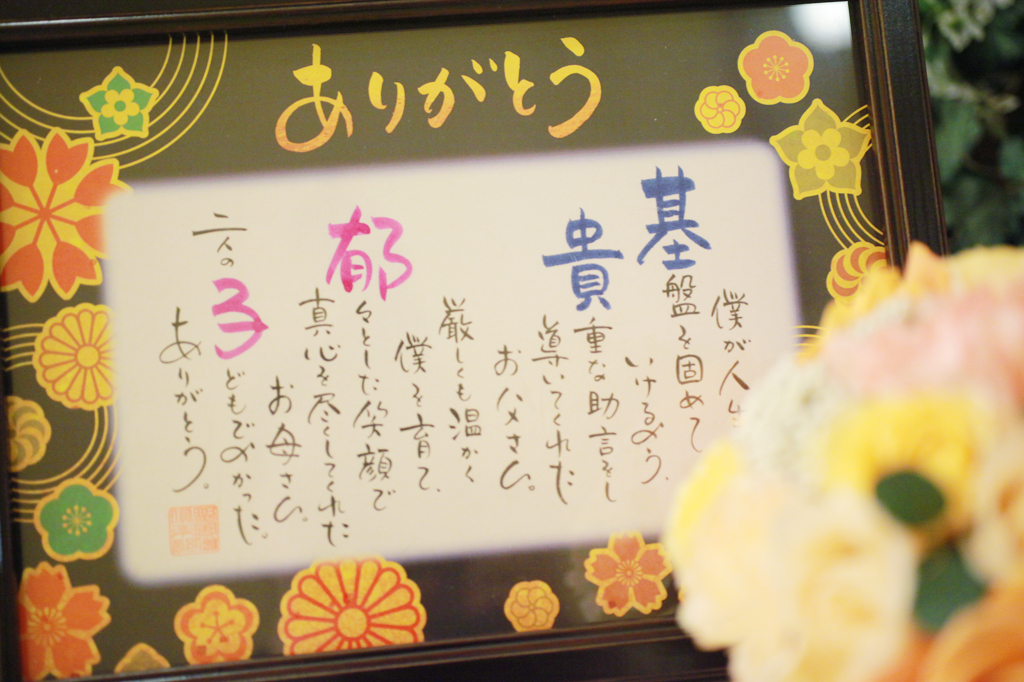 ありがとう
僕が人
基盤を固めて
いけるよう、
貴重な助言をし
導いてくれた
お父さん。
厳しくも温かく
僕を育て、
郁々とした笑顔で
真心を尽くしてくれた
お母さん。
二人の子どもでよかった。
ありがとう。